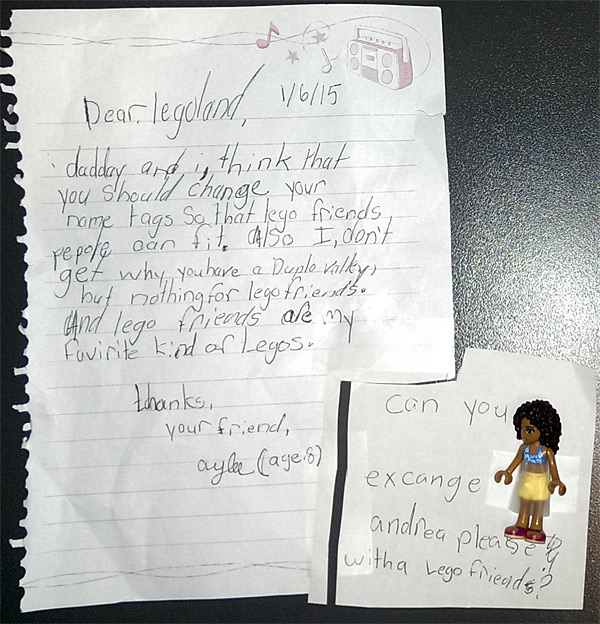 1/6/15
Dear legoland,
dadday and i, think that
you should change your
name tags So that lego friends
pepole can fit. Also I, don't
get why you have a Duplo valley,
but nothing for lego friends.
And lego friends are my
fuvirite kind of Legos.
thanks,
your friend,
aylee (age:8)
can you
excange
andrea please
with a Lego friends?